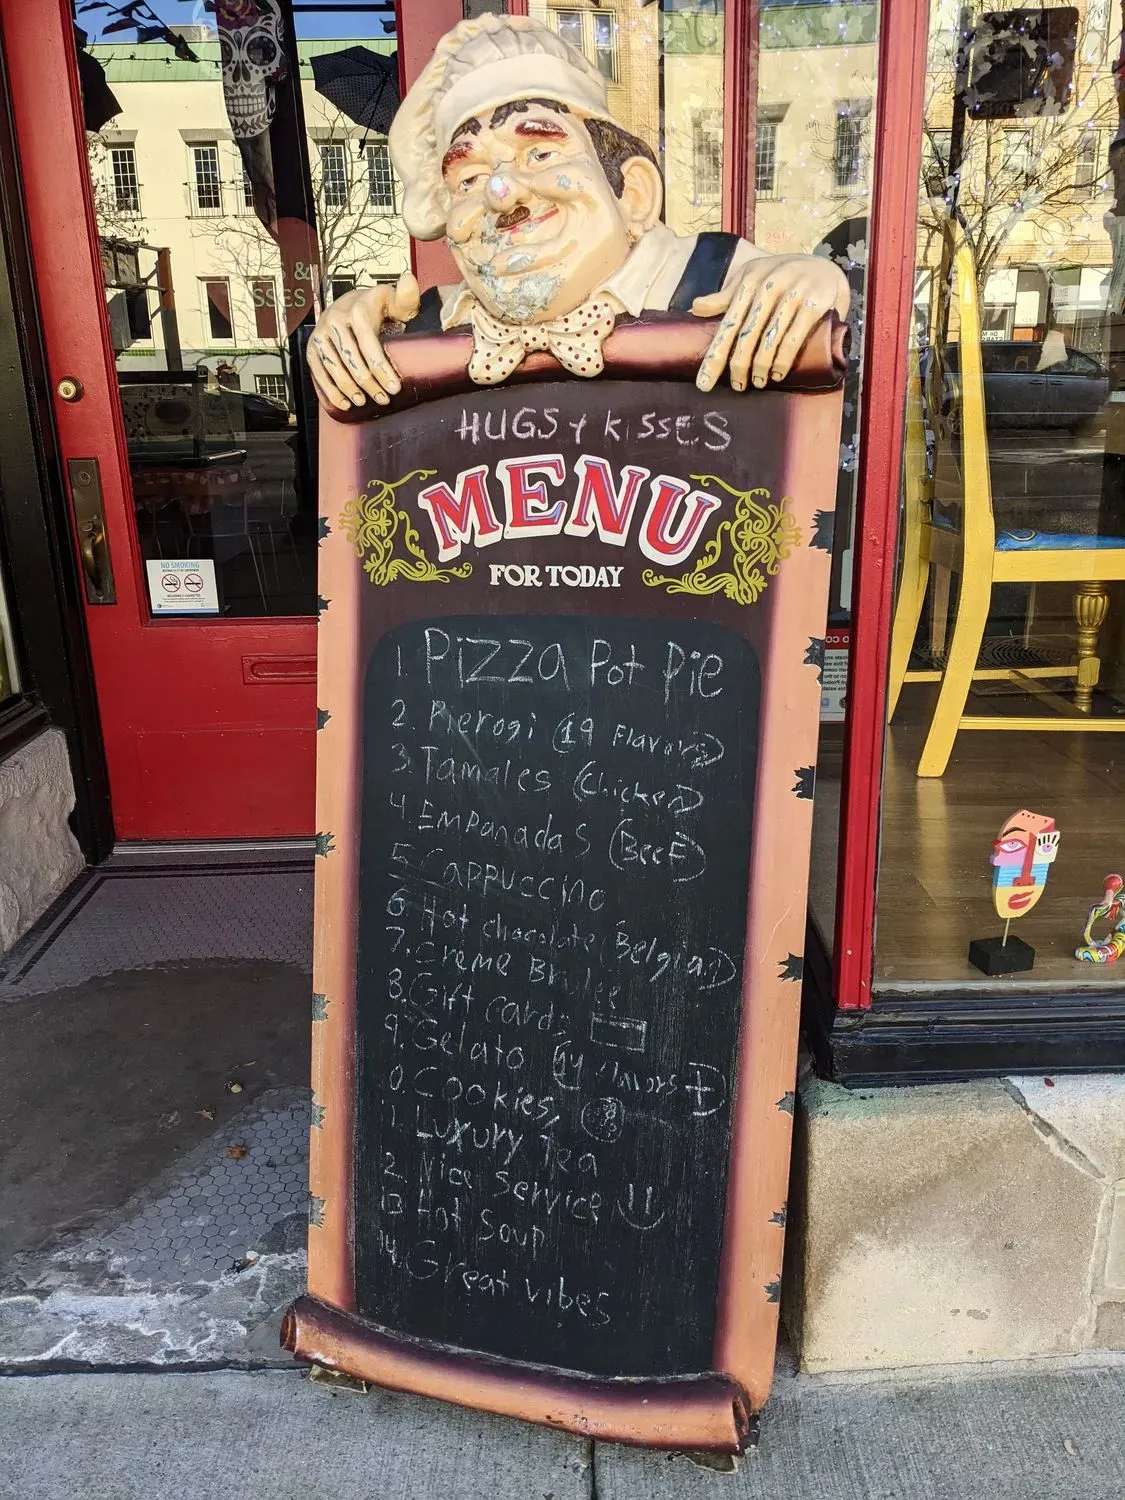 HUGS & KISSES
MENU
FOR TODAY
1. Pizza Pot Pie
2. Pierogi (19 Flavors)
3. Tamales (Chicken)
4. Empanadas (Beef)
5. Cappuccino
6. Hot chocolate (Belgian)
7. Creme Brulee
8. Gift cards
9. Gelato (44 flavors +)
0. Cookies,
1. Luxury Tea
2 Nice Service
13 Hot Soup
14. Great vibes
NO SMOKING
&
SSES